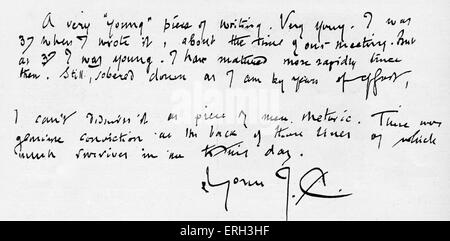 A very "young" piece of writing. Very young. I was
37 when I wrote it, about the time of our meeting. But
at 37 I was young. I have matured more rapidly since
then. Still, sobered down as I am by years of effort,
I can't dismiss it as piece of mere rhetoric. There was
genuine conviction at the back of these lines of which
much survives in me to this day.
Yours J. C.
alamy
ERH3HF
www.alamy.com